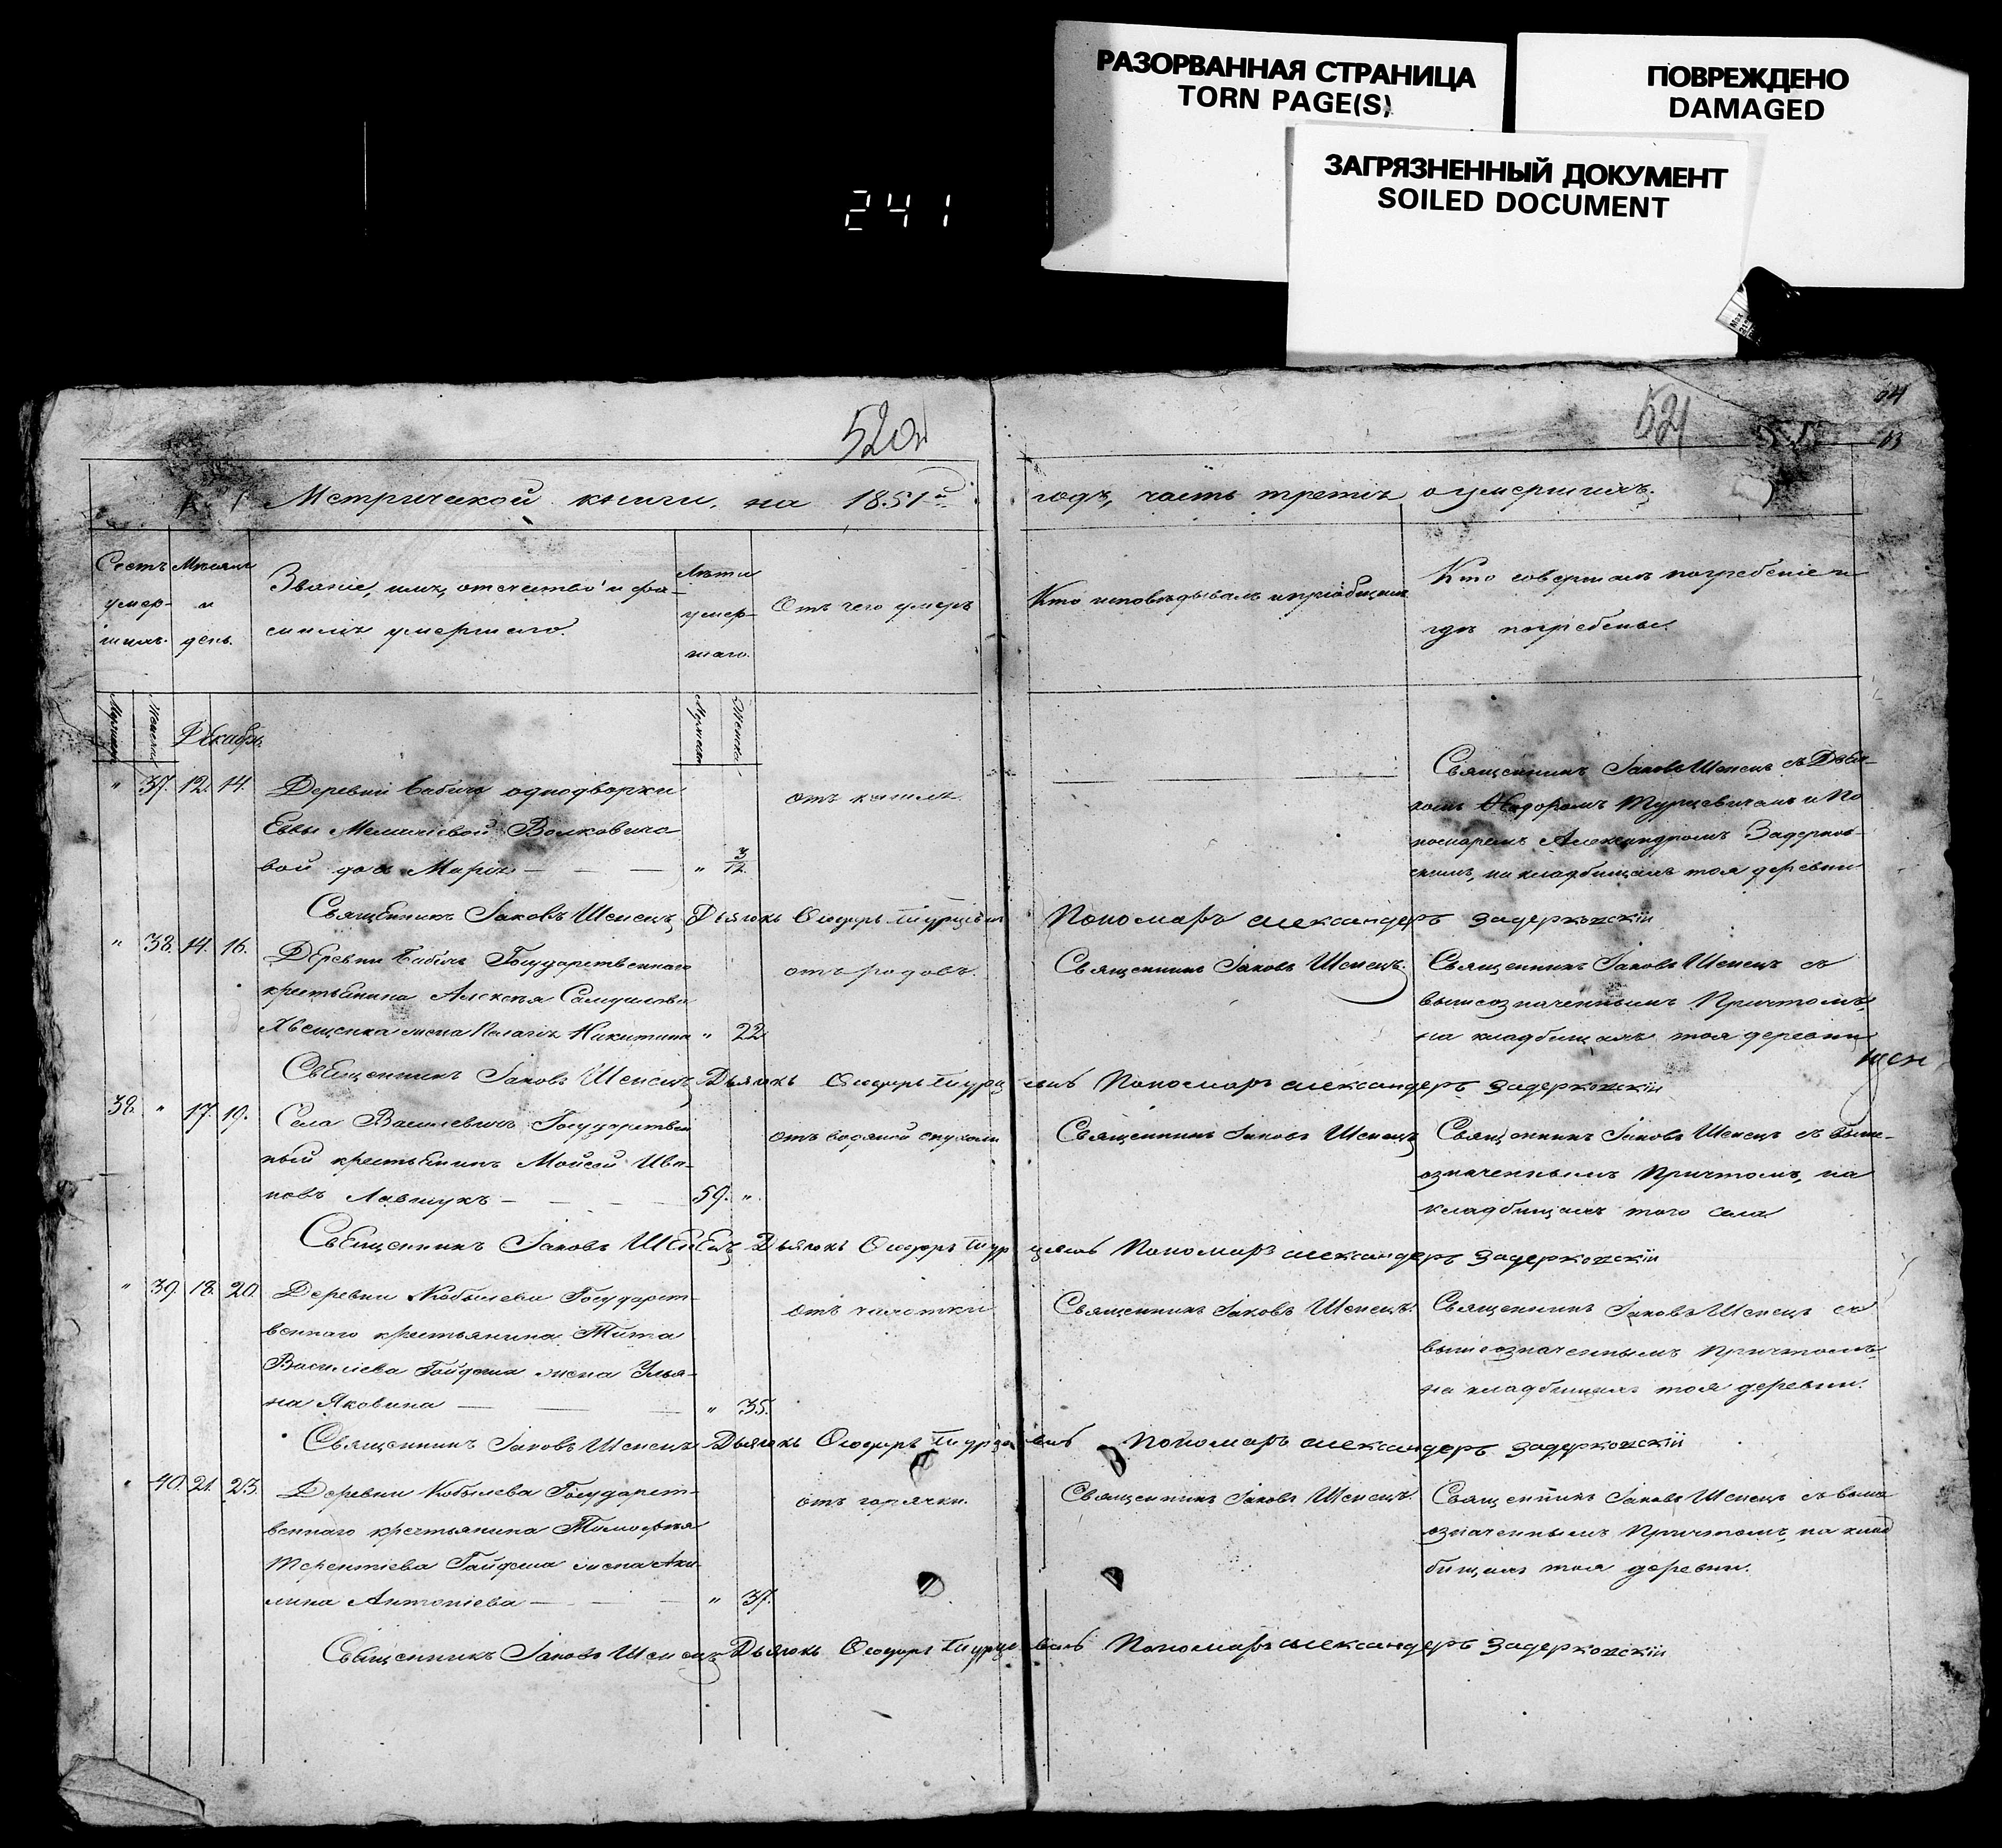 РАЗОРВАННАЯ СТРАНИЦА
TORN PAGE(S)
ПОВРЕЖДЕНО
DAMAGED
ЗАГРЯЗНЕННЫЙ ДОКУМЕНТ
SOILED DOCUMENT
241
520
521
Метрической книги, на 1851й годъ, часть третія о умершихъ.
Счетъ умер- шихъ.
Мѣсяцъ и день.
Званіе, имя, отечество и фа-
милія умершаго.
Лѣта умер- шаго.
Отъ чего умеръ
Кто исповѣдывалъ и пріобщалъ
Кто совершалъ погребеніе и
гдѣ погребены.
Декабрь
" 37. 12. 14. Деревни Бабичъ однодворки
вой дочь Марія — — — " 3/12
отъ кашля
Священникъ Іаковъ Шепецъ съ Дьяч-
комъ Ѳеодоромъ Турцевичемъ и По
номаремъ Александромъ Задерков-
скимъ, на кладбищахъ тоя деревни
Священникъ Іаковъ Шепецъ Дьячокъ Ѳеодоръ Турцевичъ Пономарь Александеръ Задерковскій
" 38. 14. 16. Деревни Бабичъ Государственнаго
крестьянина Алексѣя Самуилова
жена Пелагія Никитина " 22
отъ родовъ.
Священникъ Іаковъ Шепецъ.
Священникъ Іаковъ Шепецъ съ
вышеозначеннымъ Причтомъ,
на кладбищахъ тоя деревни
Священникъ Іаковъ Шепецъ Дьячокъ Ѳеодоръ Турцевичъ Пономарь Александеръ Задерковскій
38. " 17. 19. Села Василевичъ Государствен
ный крестьянинъ Мойсей Ива-
новъ Лавшукъ — — — 59. "
отъ водяной опухоли
Священникъ Іаковъ Шепецъ
Священникъ Іаковъ Шепецъ съ выше-
означеннымъ Причтомъ, на
кладбищахъ того села
Священникъ Іаковъ Шепецъ Дьячокъ Ѳеодоръ Турцевичъ Пономарь Александеръ Задерковскій
" 39. 18. 20. Деревни Кобылева Государст-
веннаго крестьянина Тита
Василіева Гайдеша жена Улья-
на Яковина — — — " 35.
отъ чахотки
Священникъ Іаковъ Шепецъ.
Священникъ Іаковъ Шепецъ съ
вышеозначеннымъ Причтомъ,
на кладбищахъ тоя деревни.
Священникъ Іаковъ Шепецъ Дьячокъ Ѳеодоръ Турцевичъ Пономарь Александеръ Задерковскій
" 40. 21. 23. Деревни Кобылева Государст-
веннаго крестьянина Тимофея
Терентіева Гайдеша жена Аки-
лина Антоніева — — — " 37.
отъ горячки.
Священникъ Іаковъ Шепецъ.
Священникъ Іаковъ Шепецъ съ выше
означеннымъ Причтомъ, на клад
бищахъ тоя деревни.
Священникъ Іаковъ Шепецъ Дьячокъ Ѳеодоръ Турцевичъ Пономарь Александеръ Задерковскій